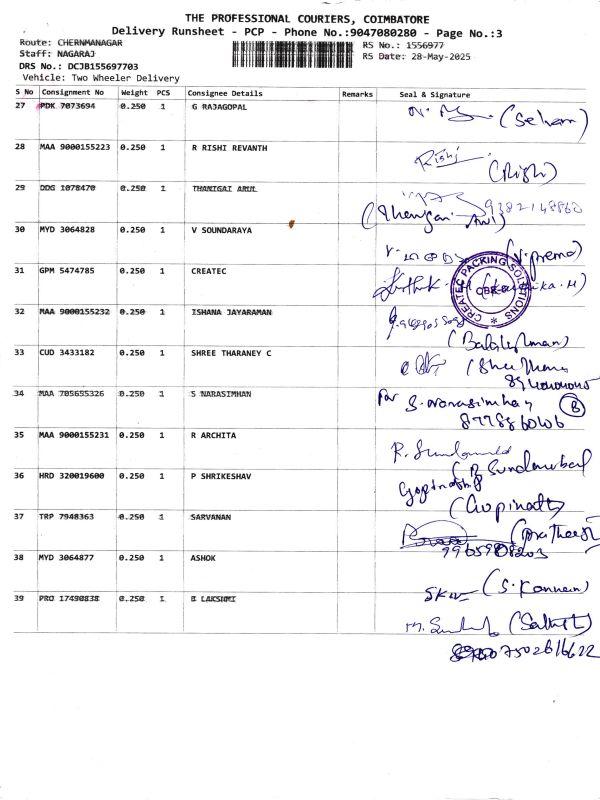 THE PROFESSIONAL COURIERS, COIMBATORE
Delivery Runsheet - PCP - Phone No.:9047080280 - Page No.:3
Route: CHERNMANAGAR RS No.: 1556977
Staff: NAGARAJ RS Date: 28-May-2025
DRS No.: DCJB155697703
Vehicle: Two Wheeler Delivery
S No Consignment No Weight PCS Consignee Details Remarks Seal & Signature
27 PDK 7073694 0.250 1 G RAJAGOPAL
28 MAA 9000155223 0.250 1 R RISHI REVANTH Rishi
(Rishi)
29 DDG 1078470 0.250 1 THANIGAI ARUL 9382148860
30 MYD 3064828 0.250 1 V SOUNDARAYA (V.prema)
31 GPM 5474785 0.250 1 CREATEC CREATEC PACKING SOLUTIONS CBE
32 MAA 9000155232 0.250 1 ISHANA JAYARAMAN
33 CUD 3433182 0.250 1 SHREE THARANEY C
34 MAA 705655326 0.250 1 S NARASIMHAN for S. Narasimhan B
8778860406
35 MAA 9000155231 0.250 1 R ARCHITA
36 HRD 320019600 0.250 1 P SHRIKESHAV Gopinath
(Gopinath)
37 TRP 7948363 0.250 1 SARVANAN
38 MYD 3064877 0.250 1 ASHOK (S. Kannan)
39 PRO 17490838 0.250 1 B LAKSHMI
7502616622